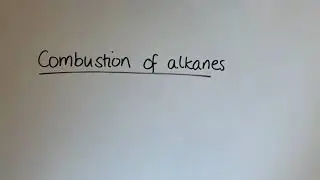 Combustion of alkanes